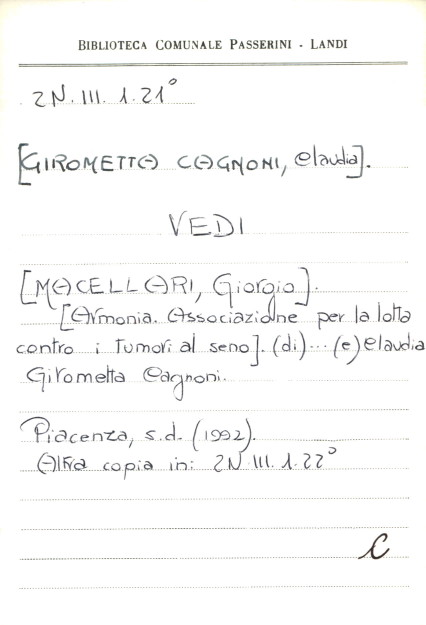 BIBLIOTECA COMUNALE PASSERINI - LANDI
2N. III. 1. 21°
[GIROMETTA CAGNONI, Claudia].
VEDI
[MACELLARI, Giorgio].
[Armonia. Associazione per la lotta
contro i tumori al seno]. (di)... (e) Claudia
Girometta Cagnoni.
Piacenza, s.d. (1992).
Altra copia in: 2N. III. 1. 22°
C